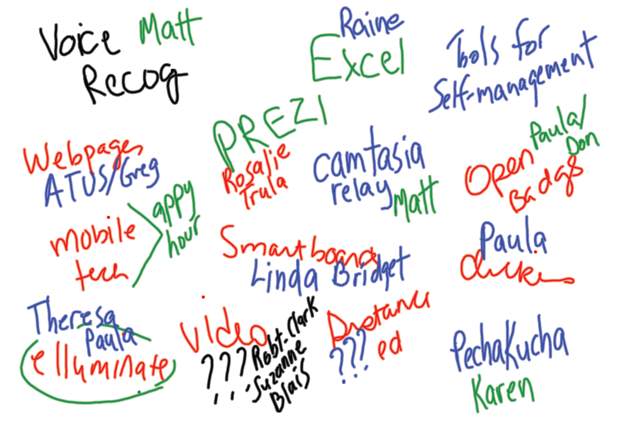 Voice Matt
Recog
Raine
Excel
Tools for
Self-management
Webpages
ATUS/Greg
PREZI
Rosalie
Trula
camtasia
relay Matt
Paula/
Don
Open
Badges
mobile
tech
appy
hour
Smartboards
Linda Bridget
Paula
clickers
Theresa
Paula
elluminate
Video
??? Robt. Clark
Suzanne
Blais
Distance
??? ed
PechaKucha
Karen